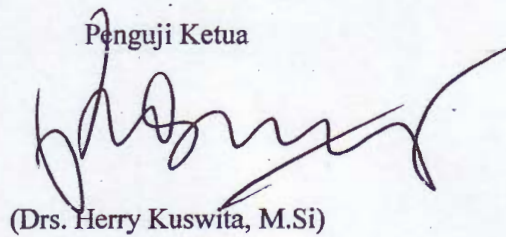 Penguji Ketua
(Drs. Herry Kuswita, M.Si)